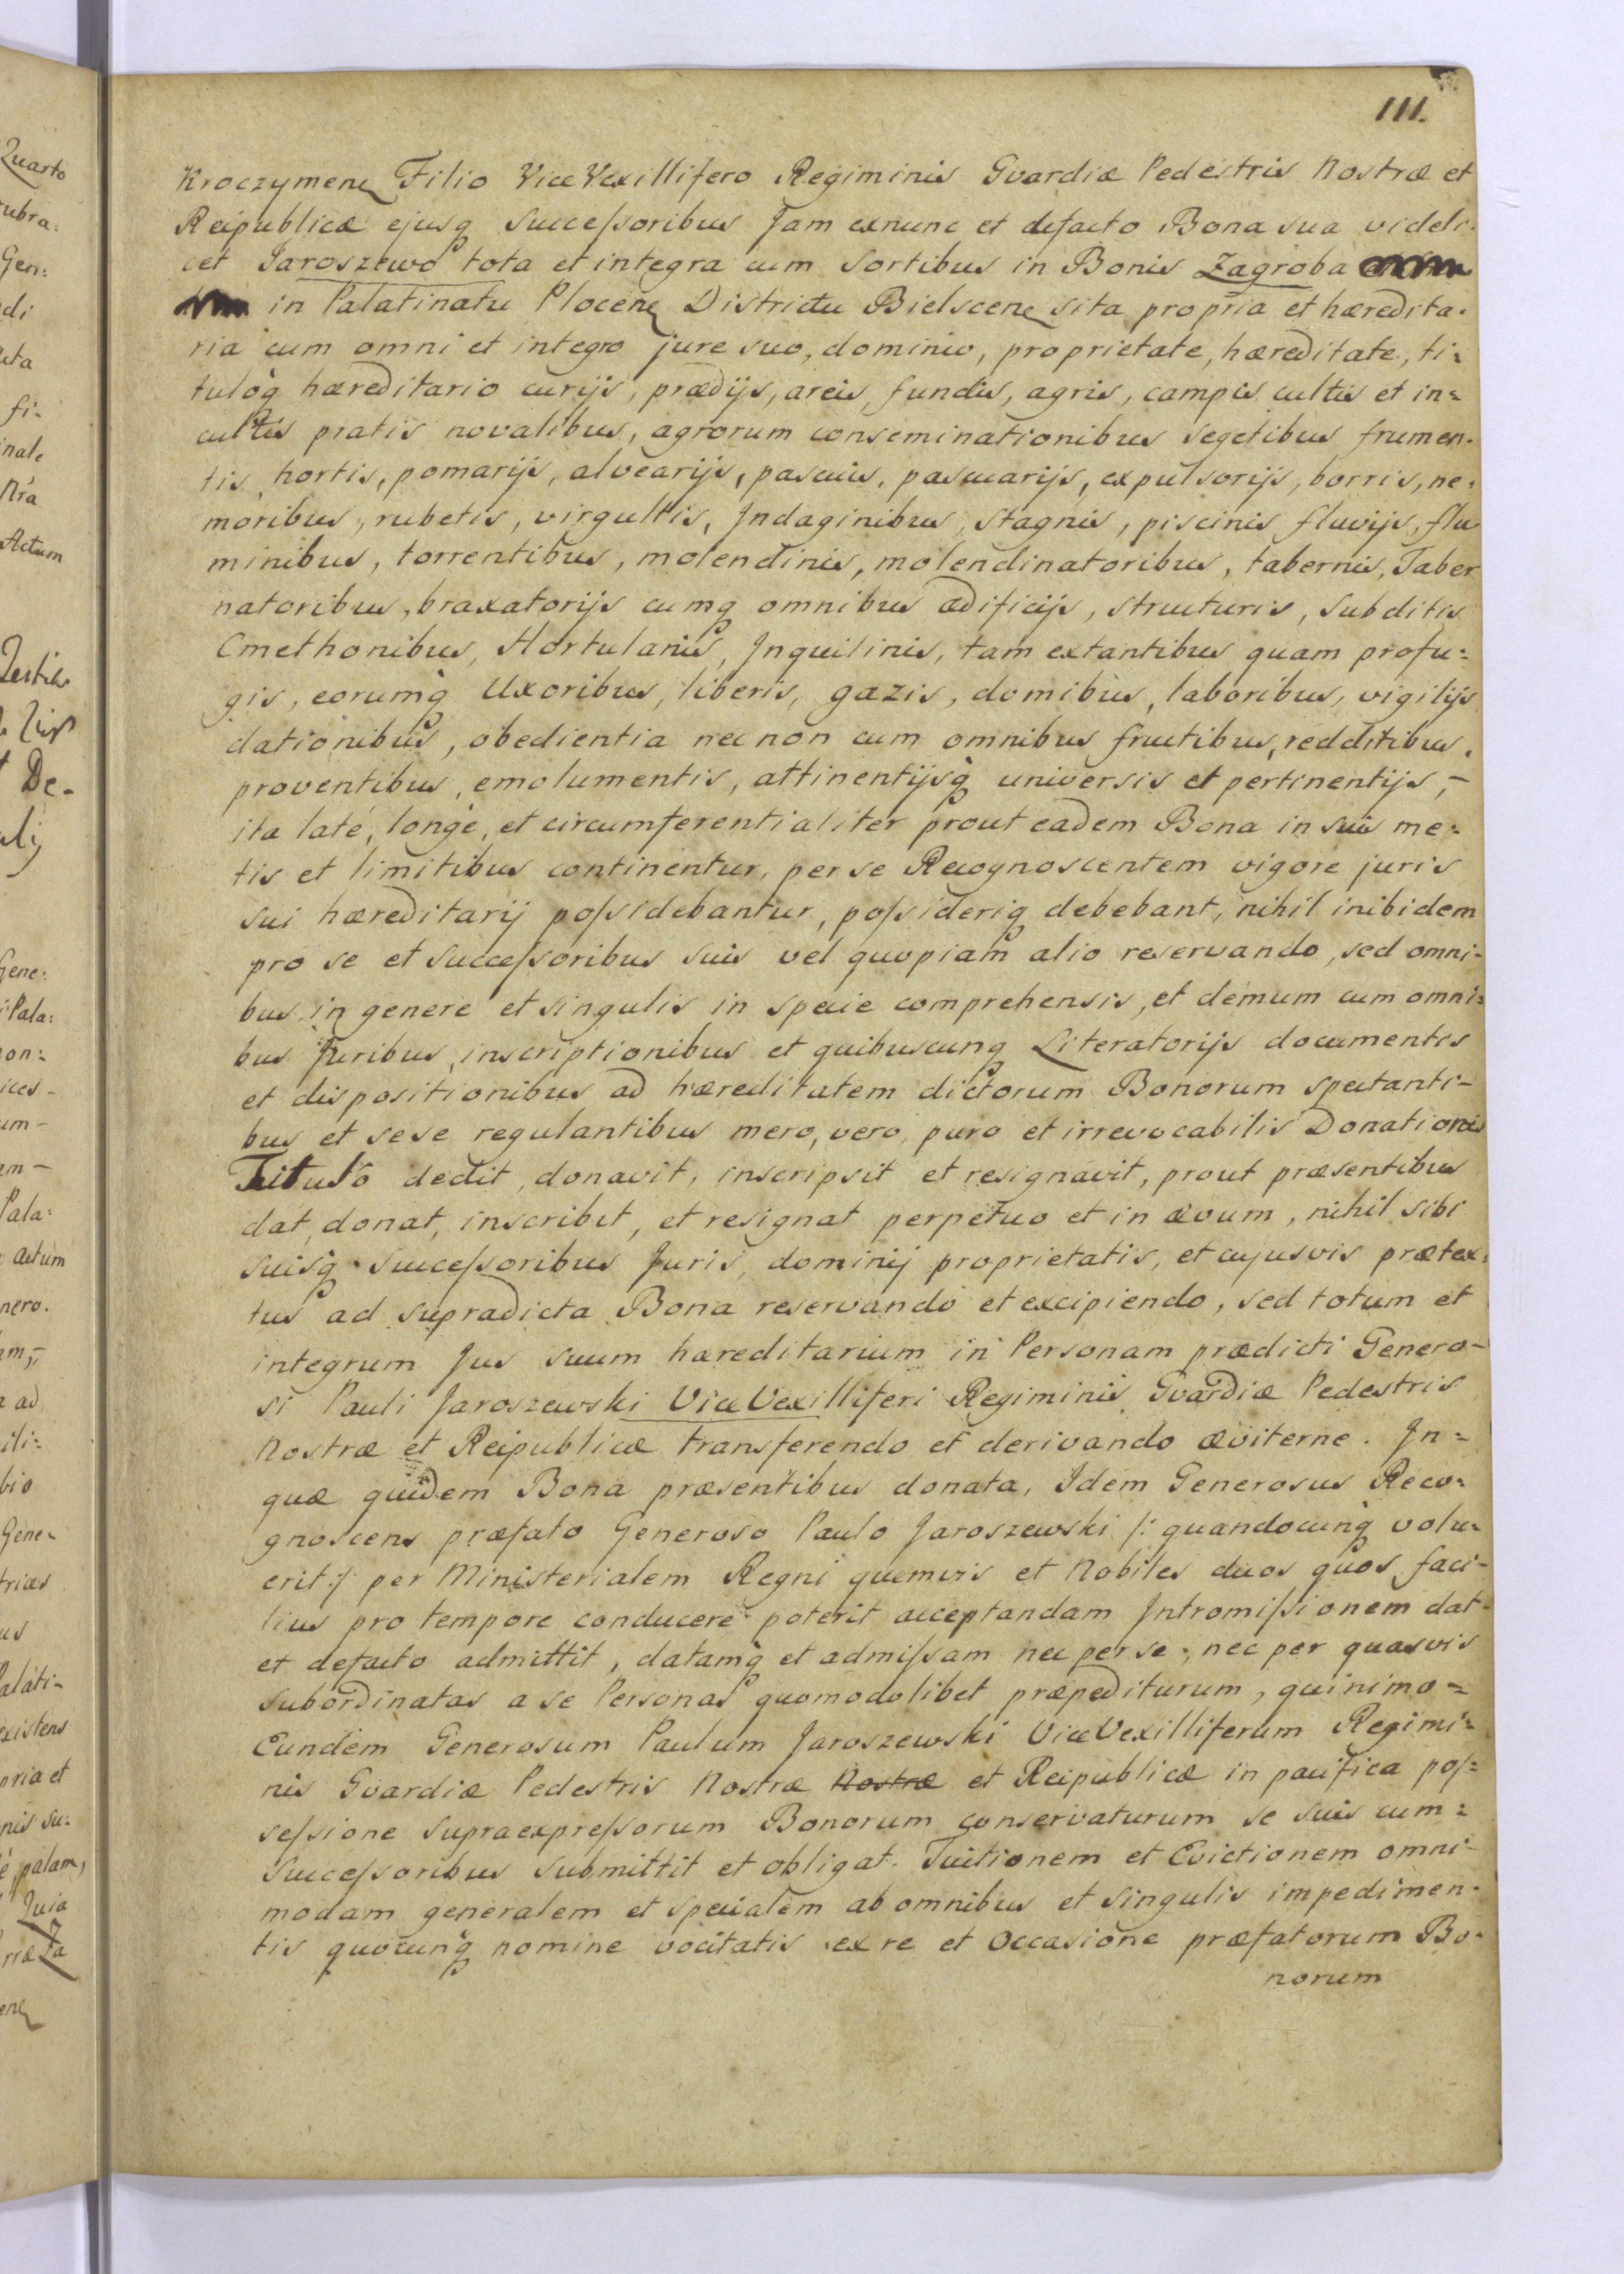 111.
Kroczymenę Filio ViceVexillifero Regiminis Gvardiæ Pedestris Nostræ et
Reipublicæ ejusq̨ Succeſsoribus Jam exnunc et defacto Bona sua videli-
cet Jaroszewo tota et integra cum Sortibus in Bonis Zagroba
in Palatinatu Plocenę Districtu Bielscenę sita propria et hæredita-
ria cum omni et integro jure suo, dominio, proprietate, hæreditate, ti=
tuloq̀ hæreditario curijs, prædijs, areis, fundis, agris, campis cultis et in=
cultis pratis novalibus, agrorum conseminationibus segetibus frumen-
tis, hortis, pomarijs, alvearijs, pascuis, pascuarijs, expulsorijs, borris, ne-
moribus, rubetis, virgultis, Jndaginibus, Stagnis, piscinis fluvijs, flu
minibus, torrentibus, molendinis, molendinatoribus, tabernis, Taber
natoribus, braxatorijs cumq̨ omnibus ædificijs, structuris, Subditis
Cmethonibus, Hortulanis, Jnquilinis, tam extantibus quam profu=
gis, eorumq̀ Uxoribus, liberis, gazis, domibus, laboribus, vigilijs
dationibus, obedientia nec non cum omnibus fructibus, redditibus,
proventibus, emolumentis, attinentijsq̀ universis et pertinentijs,-
ita laté, longè, et circumferentialiter prout eadem Bona in suis me=
tis et limitibus continentur, per se Recognoscentem vigore juris
sui hæreditarij poſsidebantur, poſsideriq̨ debebant, nihil inibidem
pro se et Succeſsoribus suis vel quopiam alio reservando, sed omni-
bus in genere et singulis in specie comprehensis, et demum cum omni=
bus Juribus, inscriptionibus et quibuscunq̨ Literatorijs documentis
et dispositionibus ad hæreditatem dictorum Bonorum spectanti-
bus et sese regulantibus mero, vero, puro et irrevocabilis Donationis
Titulo dedit, donavit, inscripsit et resignavit, prout præsentibus
dat, donat, inscribit, et resignat perpetuo et in ævum, nihil sibi
suisq̨ Succeſsoribus Juris, dominij proprietatis, et cujusvis prætex-
tus ad supradicta Bona reservando et excipiendo, sed totum et
integrum Jus suum hæreditarium in Personam prædicti Genero-
si Pauli Jaroszewski ViceVexilliferi Regiminis Gvardiæ Pedestris
Nostræ et Reipublicæ transferendo et derivando æviterne. Jn=
quæ quidem Bona præsentibus donata, Idem Generosus Reco=
gnoscens præfato Generoso Paulo Jaroszewski /: quandocunq̀ volu=
erit :/ per Ministerialem Regni quemvis et Nobiles duos quos faci-
lius pro tempore conducere poterit acceptandam Jntromiſsionem dat-
et defacto admittit, datamq̀ et admiſsam nec per se, nec per quasvis
subordinatas a se Personas quomodolibet præpediturum, quinimo=
Eundem Generosum Paulum Jaroszewski ViceVexilliferum Regimi=
nis Gvardiæ Pedestris Nostræ Nostræ et Reipublicæ in pacifica poſ=
seſsione supraexpreſsorum Bonorum conservaturum se suis cum=
Succeſsoribus submittit et obligat. Tuitionem et Evictionem omni-
modam generalem et specialem ab omnibus et singulis impedimen-
tis quocunq̀ nomine vocitatis ex re et Occasione præfatorum Bo-
norum